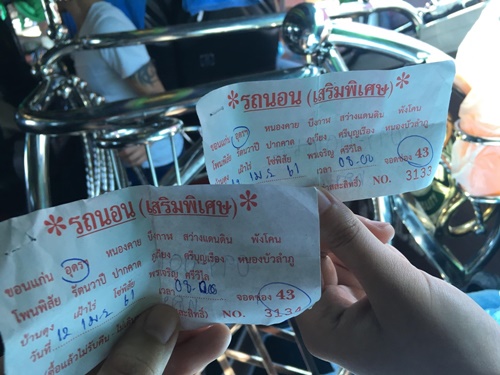 *รถนอน (เสริมพิเศษ)*
ขอนแก่น อุดร หนองคาย บึงกาฬ สว่างแดนดิน พังโคน
โพนพิสัย รัตนวาปี ปากคาด ศรีบุญเรือง หนองบัวลำภู
เฝ้าไร่ โซ่พิสัย พรเจริญ ศรีวิไล
12 เม.ย 61 เวลา 08.00 จอดช่อง 43
NO. 3133
*รถนอน (เสริมพิเศษ)*
ขอนแก่น อุดร หนองคาย บึงกาฬ สว่างแดนดิน พังโคน
โพนพิสัย รัตนวาปี ปากคาด ศรีบุญเรือง หนองบัวลำภู
บ้านดุง เฝ้าไร่ โซ่พิสัย พรเจริญ ศรีวิไล
วันที่ 12 เม.ย 61 เวลา 08.00 จอดช่อง 43
NO. 3134